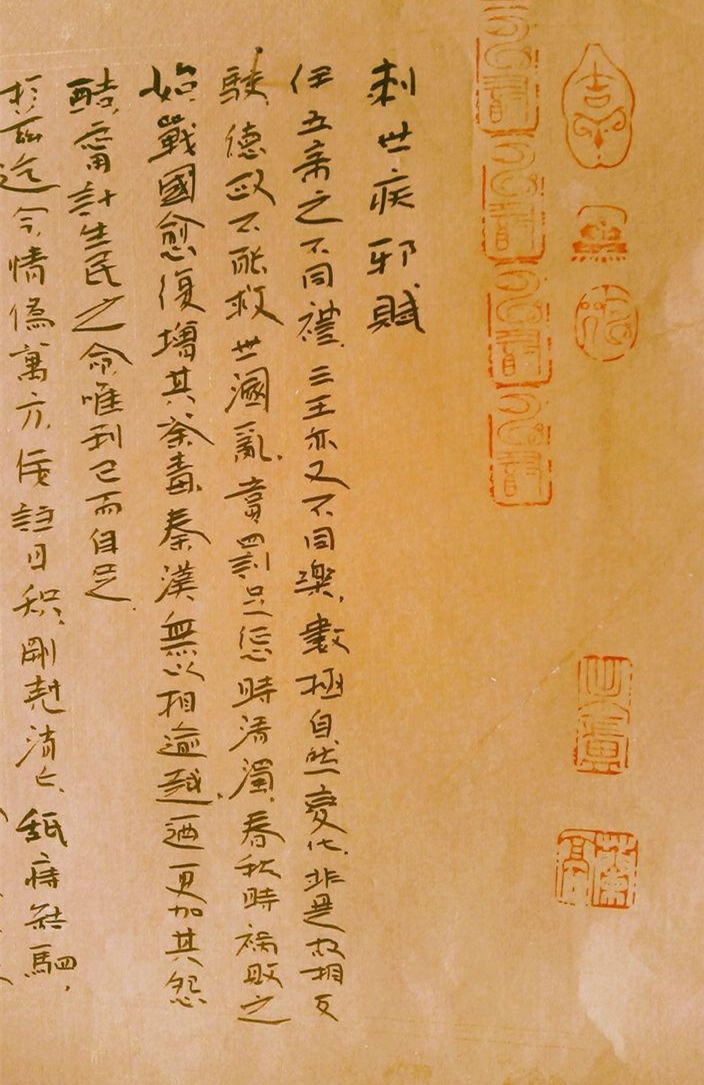 刺世疾邪賦
伊五帝之不同禮,三王亦又不同樂,數極自然變化,非是故相反
駮,德政不能救世溷亂,賞罰豈足懲時清濁,春秋時禍敗之
始,戰國愈復增其荼毒,秦漢無以相逾越,迺更加其怨
酷,甯計生民之命,唯利己而自足.
於茲迄今情偽萬方,佞諂日熾,剛克消亡,舐痔結駟,